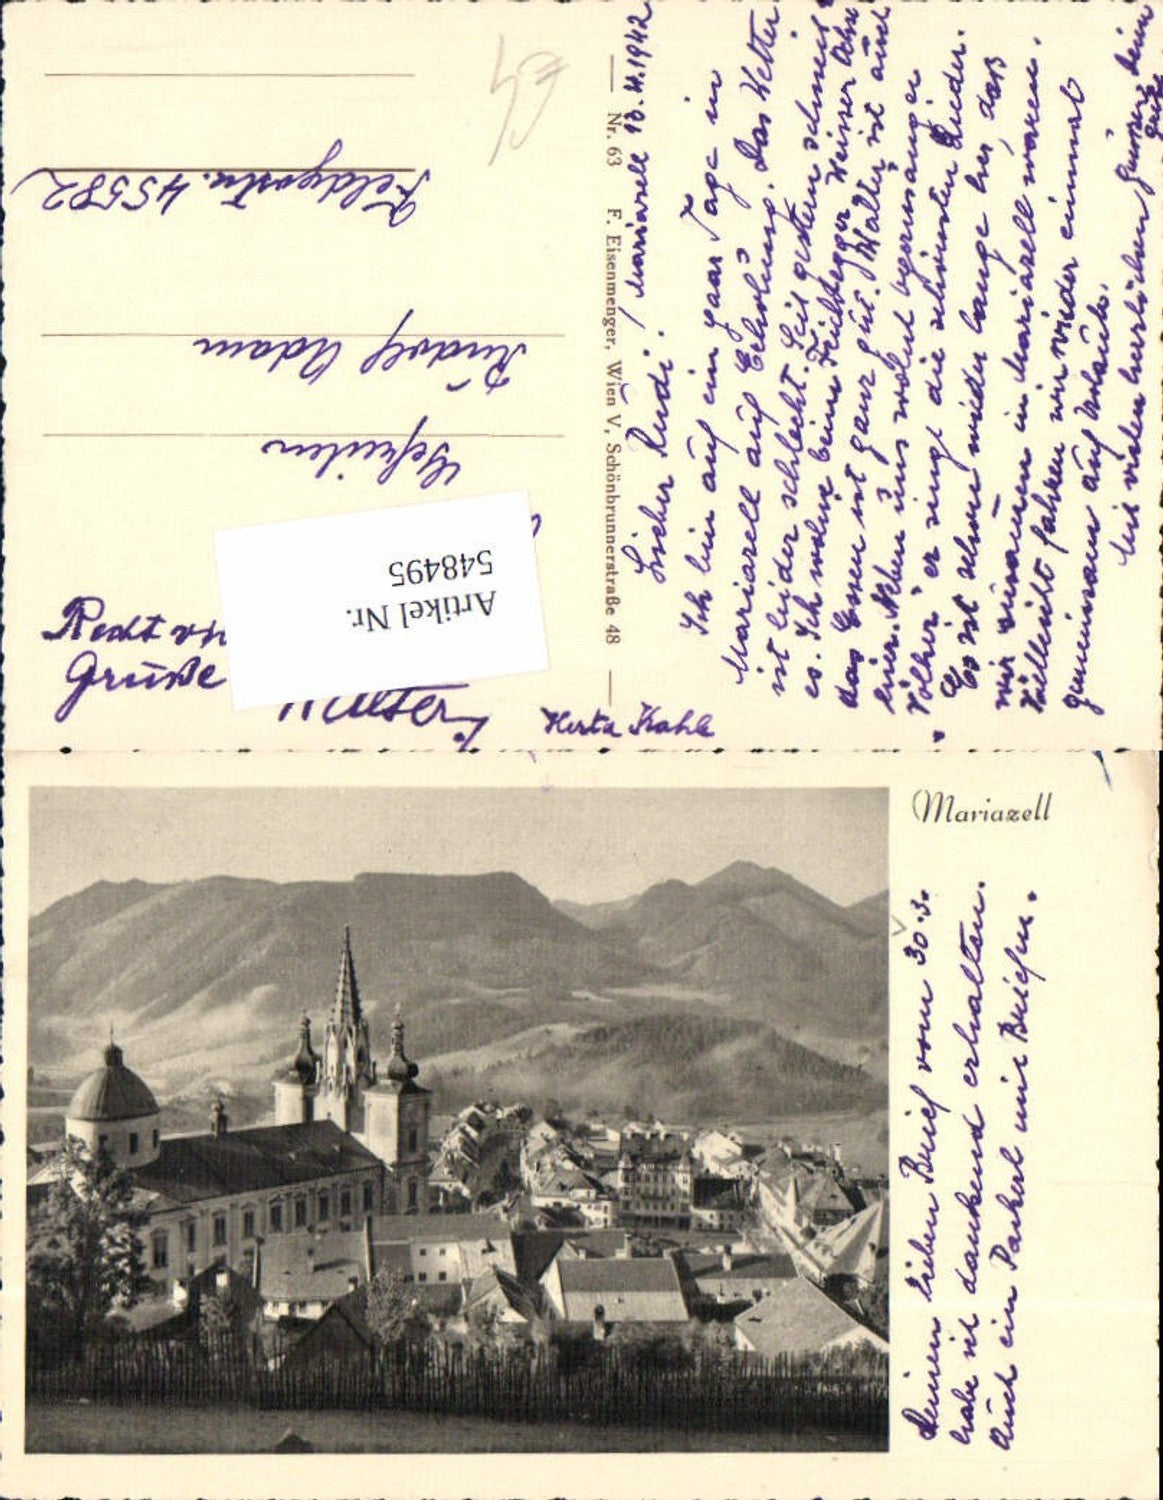 Mariazell 13.4.1942
Lieber Rudi!
Ich bin auf ein paar Tage in
Mariazell auf Erholung. Das Wetter
ist leider schlecht. Seit gestern schneit
es. Ich wohne beim Feichtegger Weisser Ochse
das Essen ist ganz gut. Walter ist auch
hier. Neben uns wohnt
"Völker" er singt die schönsten Lieder.
Es ist schon wieder lange her, daß
wir zusammen in Mariazell waren.
Vielleicht fahren wir wieder einmal
gemeinsam auf Urlaub.
Mit vielen herzlichen
Herta Kahle
Nr. 63 F. Eisenmenger, Wien V, Schönbrunnerstraße 48
Gefreiten
Rudolf Adam
Feldpostnr. 45582
Artikel Nr.
548495
Recht
Grüße
Walter
Mariazell
Deinen lieben Brief vom 30.3.
habe ich dankend erhalten.
Auch ein Packerl mit Briefen.